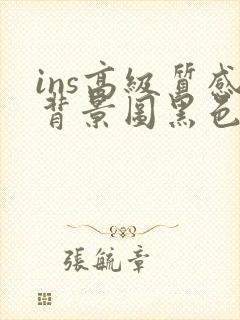 ins高級質感
背景圖黑色
張毓章